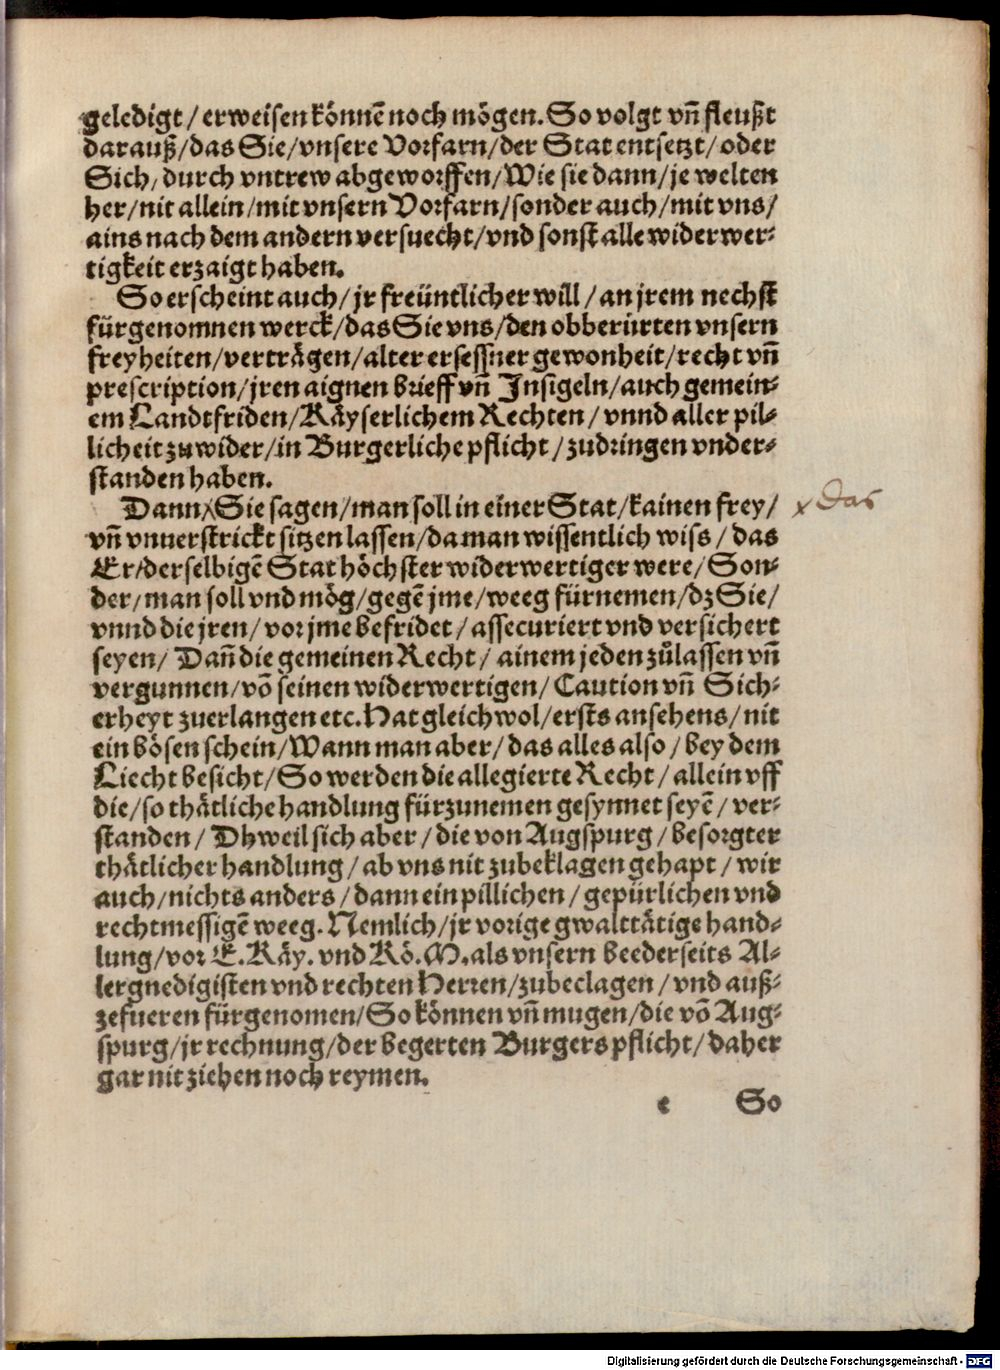 geledigt / erweisen könnē noch mögen. So volgt vñ fleußt
darauß / das Sie / vnsere Vorfarn / der Stat entsetzt / oder
Sich / durch vntrew abgeworffen / Wie sie dann / je welten
her / nit allein / mit vnsern Vorfarn / sonder auch / mit vns /
ains nach dem andern versuecht / vnd sonst alle widerwer-
tigkeit erzaigt haben.
So erscheint auch / jr freüntlicher will / an jrem nechst
fürgenomnen werck / das Sie vns / den obberürten vnsern
freyheiten / verträgen / alter ersessner gewonheit / recht vñ
prescription / jren aignen brieff vñ Insigeln / auch gemein-
em Landtfriden / Käyserlichem Rechten / vnnd aller pil-
licheit zuwider / in Burgerliche pflicht / zudringen vnder-
standen haben.
Dann x Sie sagen / man soll in einer Stat / kainen frey /
x das
vñ vnuerstrickt sitzen lassen / da man wissentlich wiss / das
Er / derselbigē Stat höchster widerwertiger were / Son-
der / man soll vnd mög / gegē jme / weeg fürnemen / dz Sie /
vnnd die jren / vor jme befridet / assecuriert vnd versichert
seyen / Dañ die gemeinen Recht / ainem jeden zůlassen vñ
vergunnen / vō seinen widerwertigen / Caution vñ Sich-
erheyt zuerlangen etc. Hat gleichwol / ersts ansehens / nit
ein bösen schein / Wann man aber / das alles also / bey dem
Liecht besicht / So werden die allegierte Recht / allein vff
die / so thätliche handlung fürzunemen gesynnet seyē / ver-
standen / Dhweil sich aber / die von Augspurg / besorgter
thätlicher handlung / ab vns nit zubeklagen gehapt / wir
auch / nichts anders / dann ein pillichen / gepürlichen vnd
rechtmessigē weeg. Nemlich / jr vorige gwalttätige hand-
lung / vor E. Käy. vnd Kö. M. als vnsern beederseits Al-
lergnedigisten vnd rechten Herren / zubeclagen / vnd auß-
zefueren fürgenomen / So können vñ mugen / die vō Aug-
spurg / jr rechnung / der begerten Burgers pflicht / daher
gar nit ziehen noch reymen.
e So
Digitalisierung gefördert durch die Deutsche Forschungsgemeinschaft - DFG